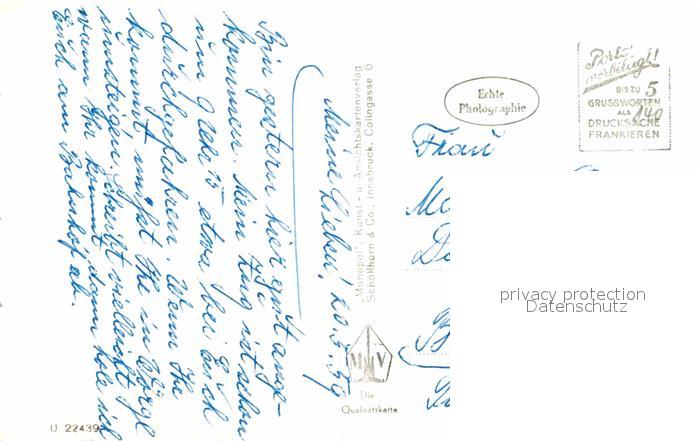 Meine Lieben! 20.5.59
Bin gestern hier gut ange-
kommen. Mein Zug ist schon
um 9 Uhr 15 etwa bei Euch
durchgefahren. Wenn Ihr
kommt, müßt Ihr in Wörgl
umsteigen. Schreibt vielleicht
wann Ihr kommt, dann hole ich
Euch am Bahnhof ab.
"Monopol", Kunst- u. Ansichtskartenverlag
Schöllhorn & Co., Innsbruck, Colingasse 6
Echte
Photographie
Porto-
verbilligt!
BIS ZU 5
GRUSSWORTEN
ALS
DRUCKSACHE
FRANKIEREN
140
Frau
privacy protection
Datenschutz
M V
Die
Qualitätskarte
U 22439